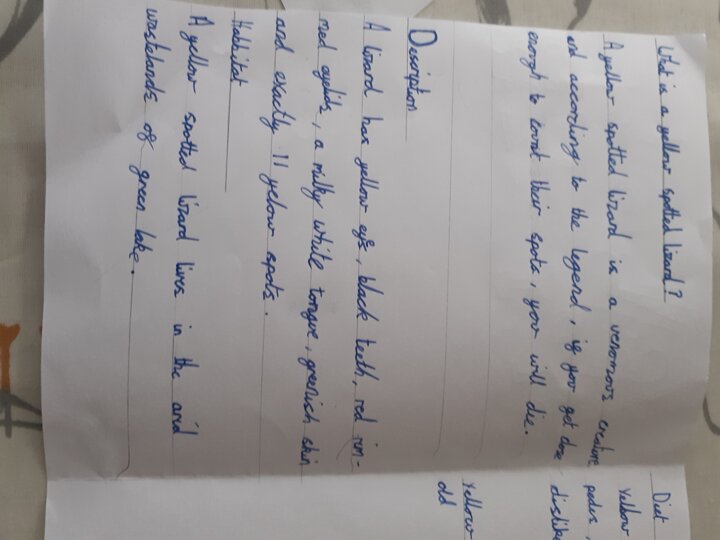 What is a yellow spotted lizard?
A yellow spotted lizard is a venomous creature
and according to the legend, if you get close
enough to count their spots, you will die.
Description
A lizard has yellow eyes, black teeth, red rim-
med eyelids, a milky white tongue, greenish skin
and exactly 11 yellow spots.
Habbitat
A yellow spotted lizard lives in the arid
wastelands of green lake.
Diet
Yellow
pedes,
dislike
Yellow
old